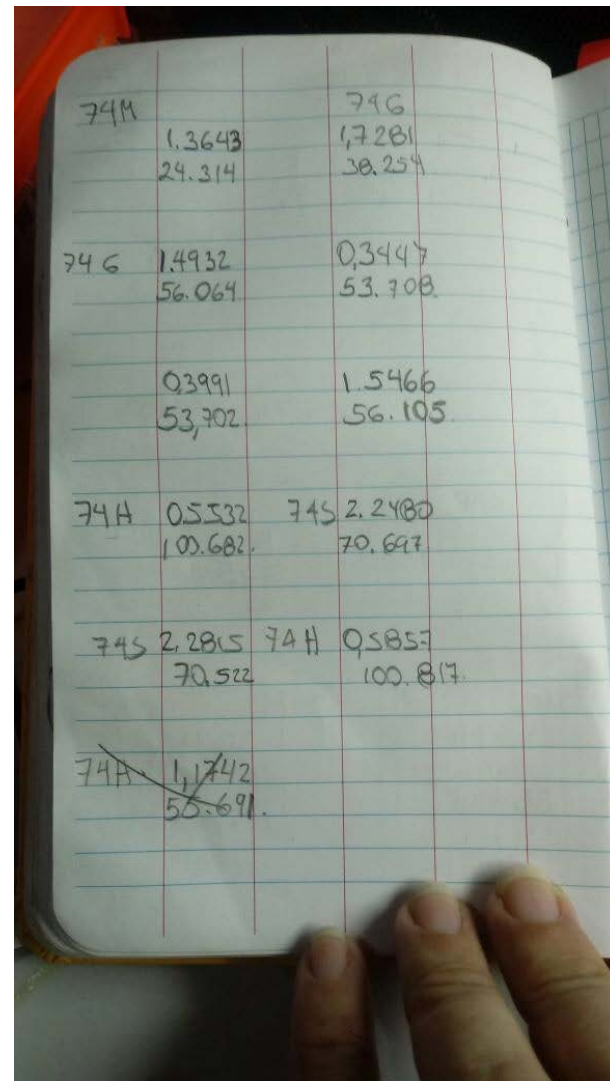 74M 746
1.3643 1,7281
24.314 38.254
746 1.4932 0,3447
56.064 53.708.
0,3991 1.5466
53,702 56.105.
74H 0.5532 74S 2.2480
100.682. 70.697
74S 2,2815 74H 0,5857
70.522 100.817.
74H. 1,1742
55.691.